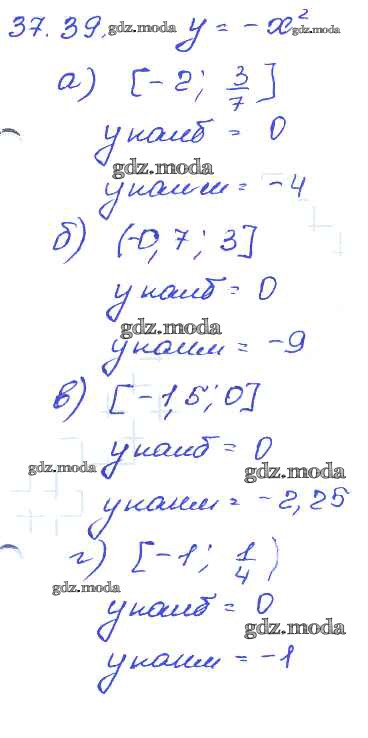 37.39. gdz.moda y = -x² gdz.moda
а) [-2; 3/7]
y наиб = 0
gdz.moda
y наим = -4
б) (-0,7; 3]
y наиб = 0
gdz.moda
y наим = -9
в) [-1,5; 0]
y наиб = 0
gdz.moda gdz.moda
y наим = -2,25
г) [-1; 1/4)
gdz.moda
y наиб = 0
gdz.moda
y наим = -1